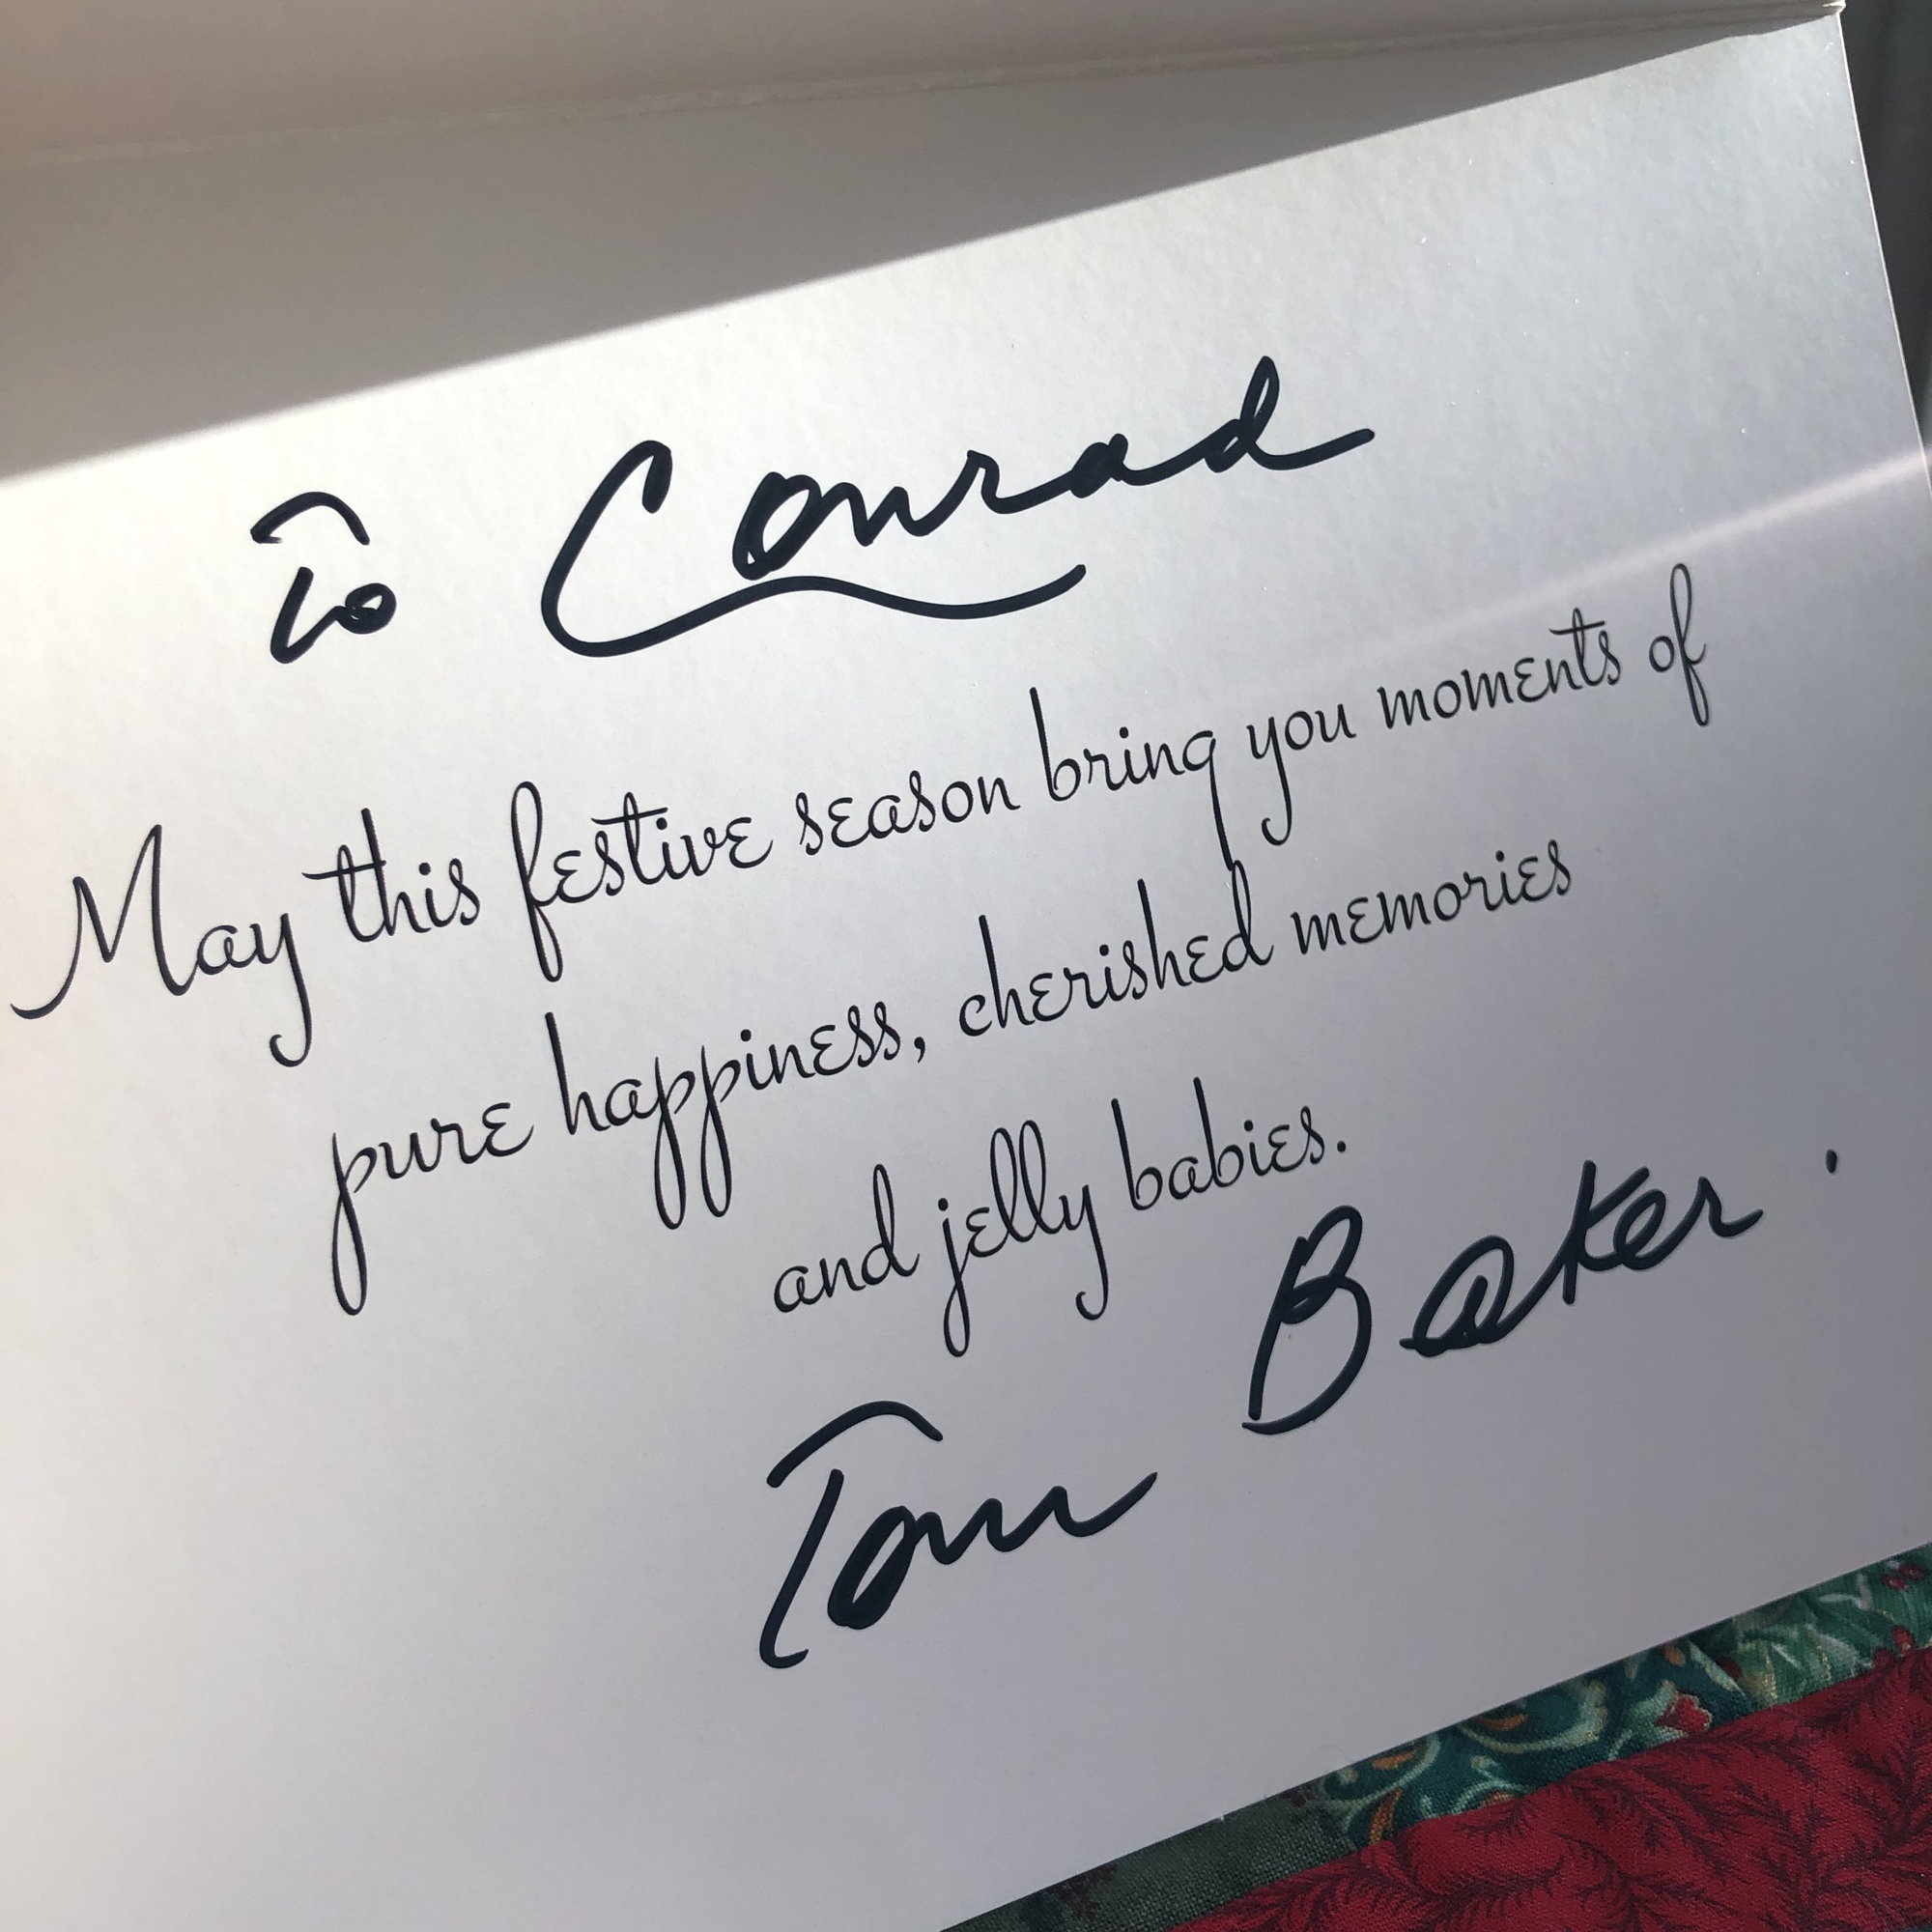 To Conrad
May this festive season bring you moments of
pure happiness, cherished memories
and jelly babies.
Tom Baker.